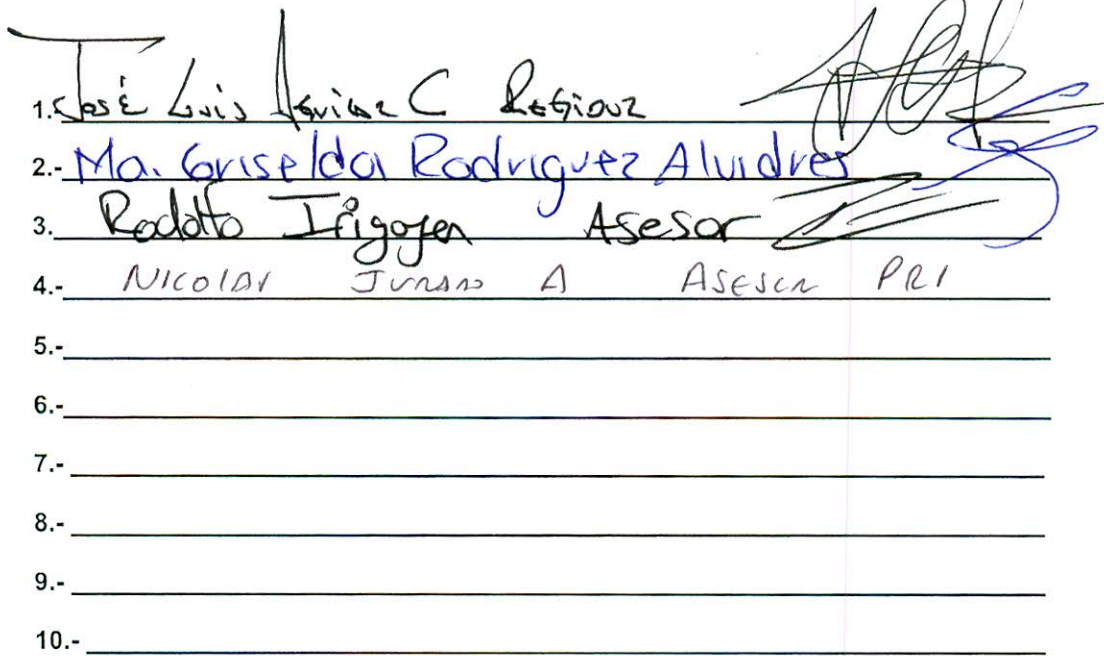 1. José Luis Aguilar C Regidor
2.- Ma. Griselda Rodriguez Alvidres
3. Rodolfo Irigoyen Asesor
4.- NICOLAS JURADO A ASESOR PRI
5.-
6.-
7.-
8.-
9.-
10.-